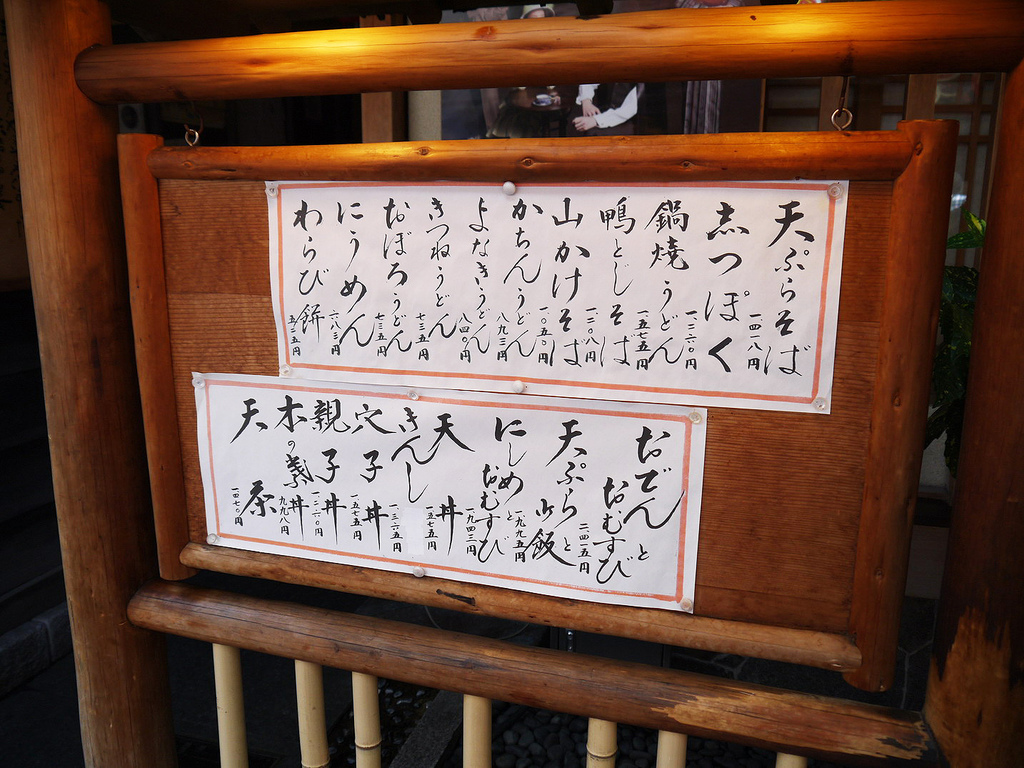 天ぷらそば 一四一八円
志っぽく 一二六〇円
鍋焼うどん 一五七五円
鴨とじそば 一二〇八円
山かけそば 一〇五〇円
かちんうどん 八九三円
よなきうどん 八四〇円
きつねうどん 七三五円
おぼろうどん 七三五円
にうめん 六八三円
わらび餅 五二五円
おでんとおむすび 二四一五円
天ぷらと御飯 一九九五円
にしめとおむすび 一九四三円
天丼 一五七五円
きんし丼 一三六五円
穴子丼 一五七五円
親子丼 一二六〇円
木の葉丼 九九八円
天茶 一四七〇円